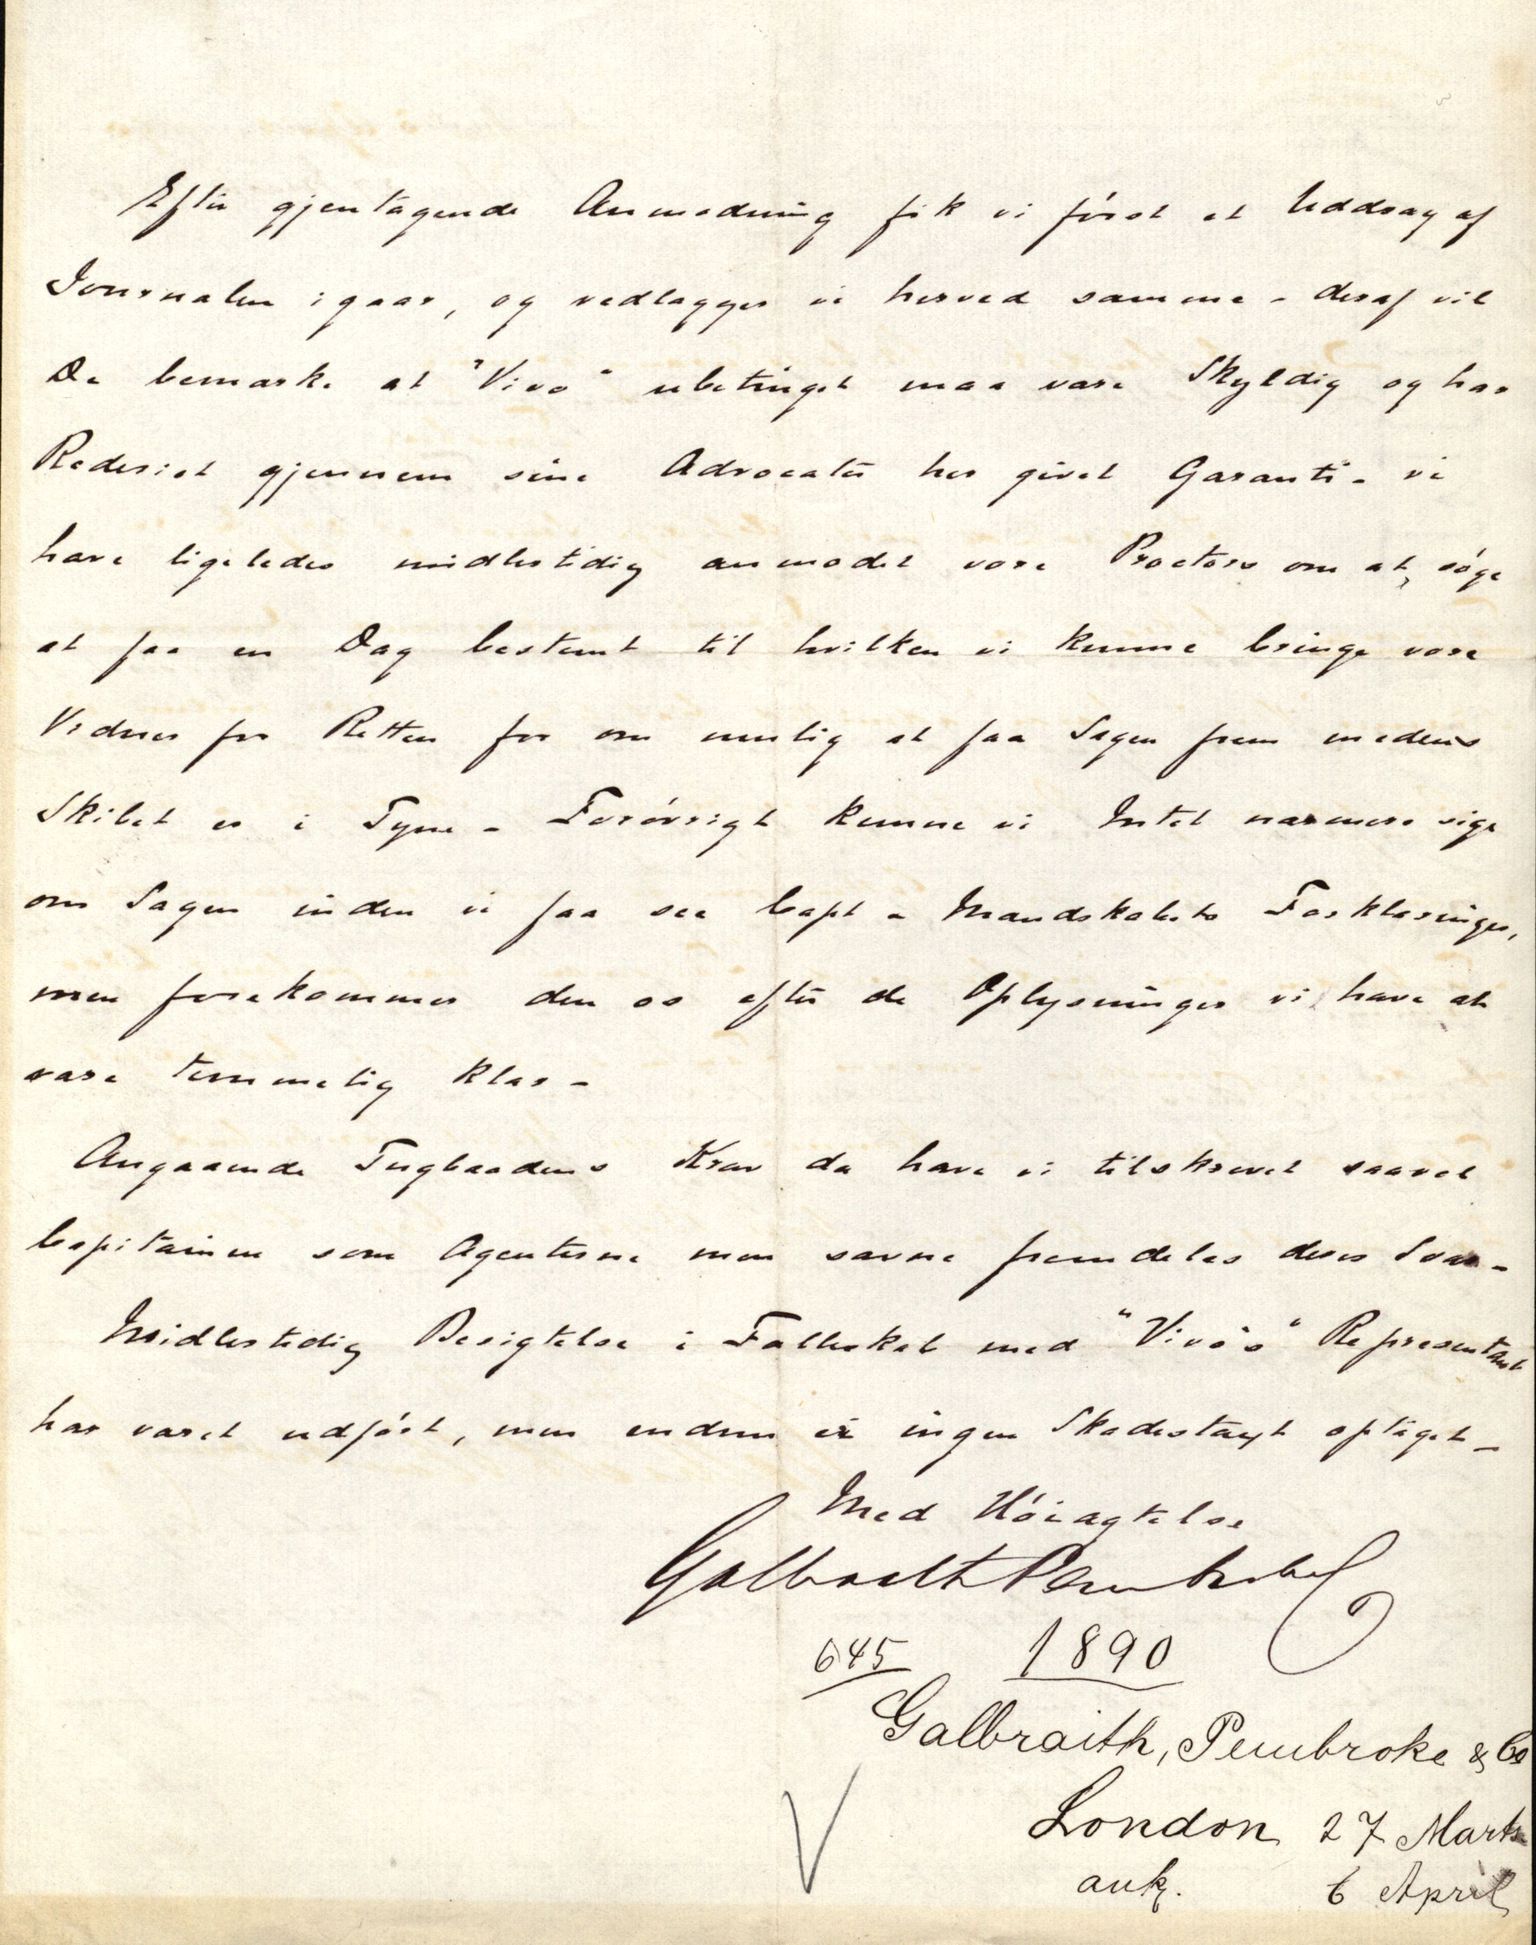 Efter gjentagende Anmodning fik vi först et Uddrag af
Journalen igaar, og vedlægger vi herved samme - deraf vil
De bemærke at "Vivo" ubetinget maa være Skyldig og har
Rederiet gjennem sine Advocater her givet Garanti - vi
have ligeledes midlertidig anmodet vore Proctors om at söge
at faa en Dag bestemt til hvilken vi kunne bringe vore
Vidner for Retten for om mulig at faa Sagen frem medens
Skibet er i Tyne - Forövrigt kunne vi Intet nærmere sige
om Sagen inden vi faa see Capt & Mandskabets Forklaringer,
men forekommer den os efter de Oplysninger vi have at
være temmelig klar -
Angaaende Tugbaadens Krav da have vi tilskrevet saavel
Capitainen som Agenterne men savne fremdeles deres Svar -
Midlertidig Besigtelse i Fælleskab med "Vivo's" Representant
har været udfört, men endnu er ingen Skadestaxt optaget -
Med Höiagtelse
Galbraith Pembroke
645 1890
Galbraith, Pembroke & Co
London 27 Marts
ank. 6 April